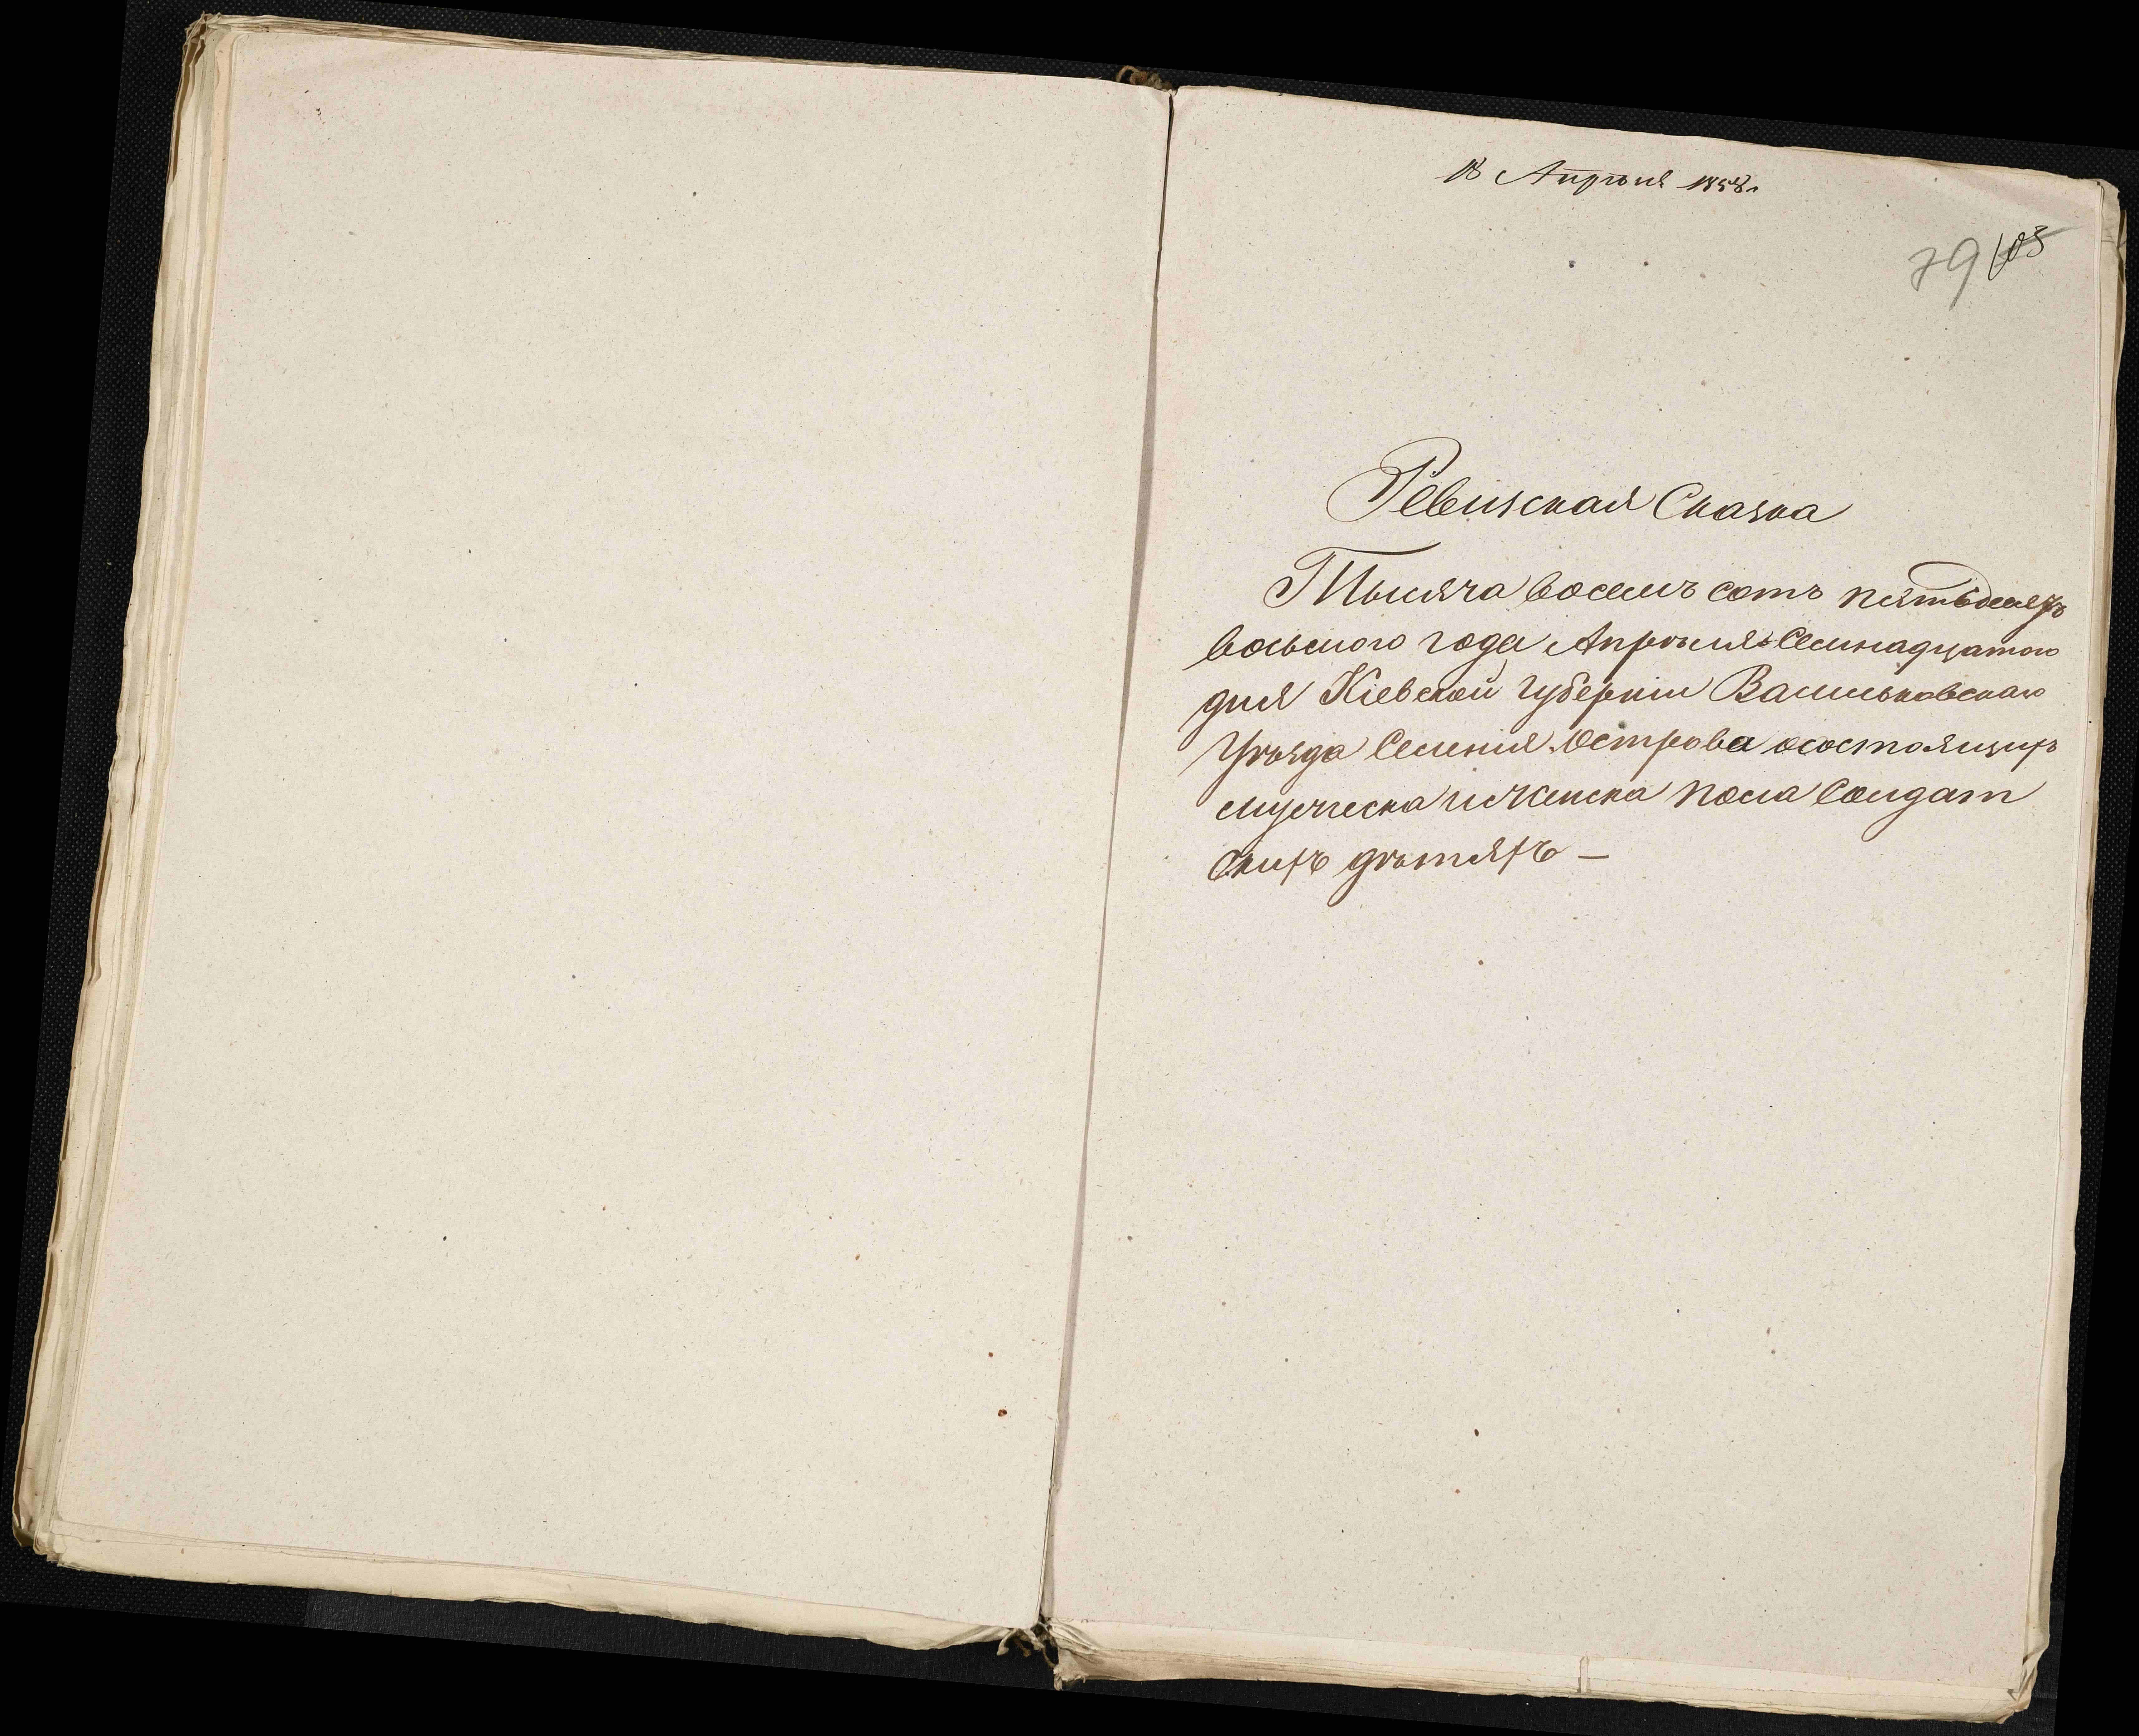 18 Апрѣля 1858 г.
79 103
Ревизская Сказка
Тысяча восемъ сотъ пятьдесятъ
восьмого года Апрѣля Семнадцатого
дня Кіевской губерніи Васильковскаго
Уѣзда Селенія Острова осостоящихъ
мужеска и женска пола Солдат
скихъ дѣтяхъ —